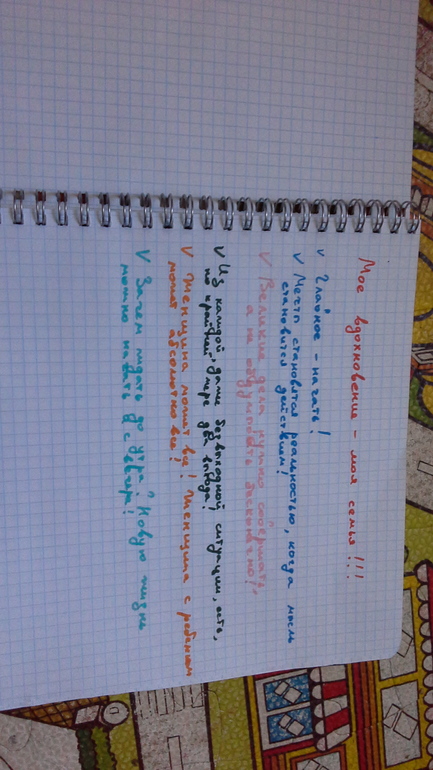 Мое вдохновение - моя семья!!!
v Главное - начать!
v Мечта становится реальностью, когда мысль
становится действием!
v Великие дела нужно совершать,
а не обдумывать бесконечно!
v Из каждой, даже безвыходной ситуации, есть,
по крайней мере два выхода!
v Женщина может все! Женщина с ребенком
может абсолютно все!
v Зачем ждать до утра? Новую жизнь
можно начать и с вечера!